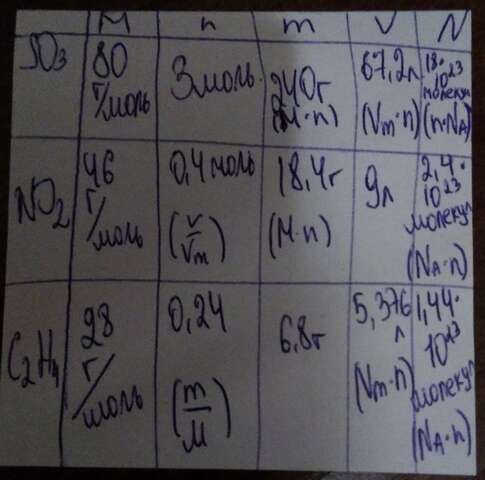 M n m V N
SO3 80 г/моль 3 моль 240 г (M·n) 67,2 л (Vm·n) 18·10^23 молекул (n·NA)
NO2 46 г/моль 0,4 моль (V/Vm) 18,4 г (M·n) 9 л 2,4·10^23 молекул (NA·n)
C2H4 28 г/моль 0,24 (m/M) 6,8 г 5,376 л (Vm·n) 1,44·10^23 молекул (NA·n)